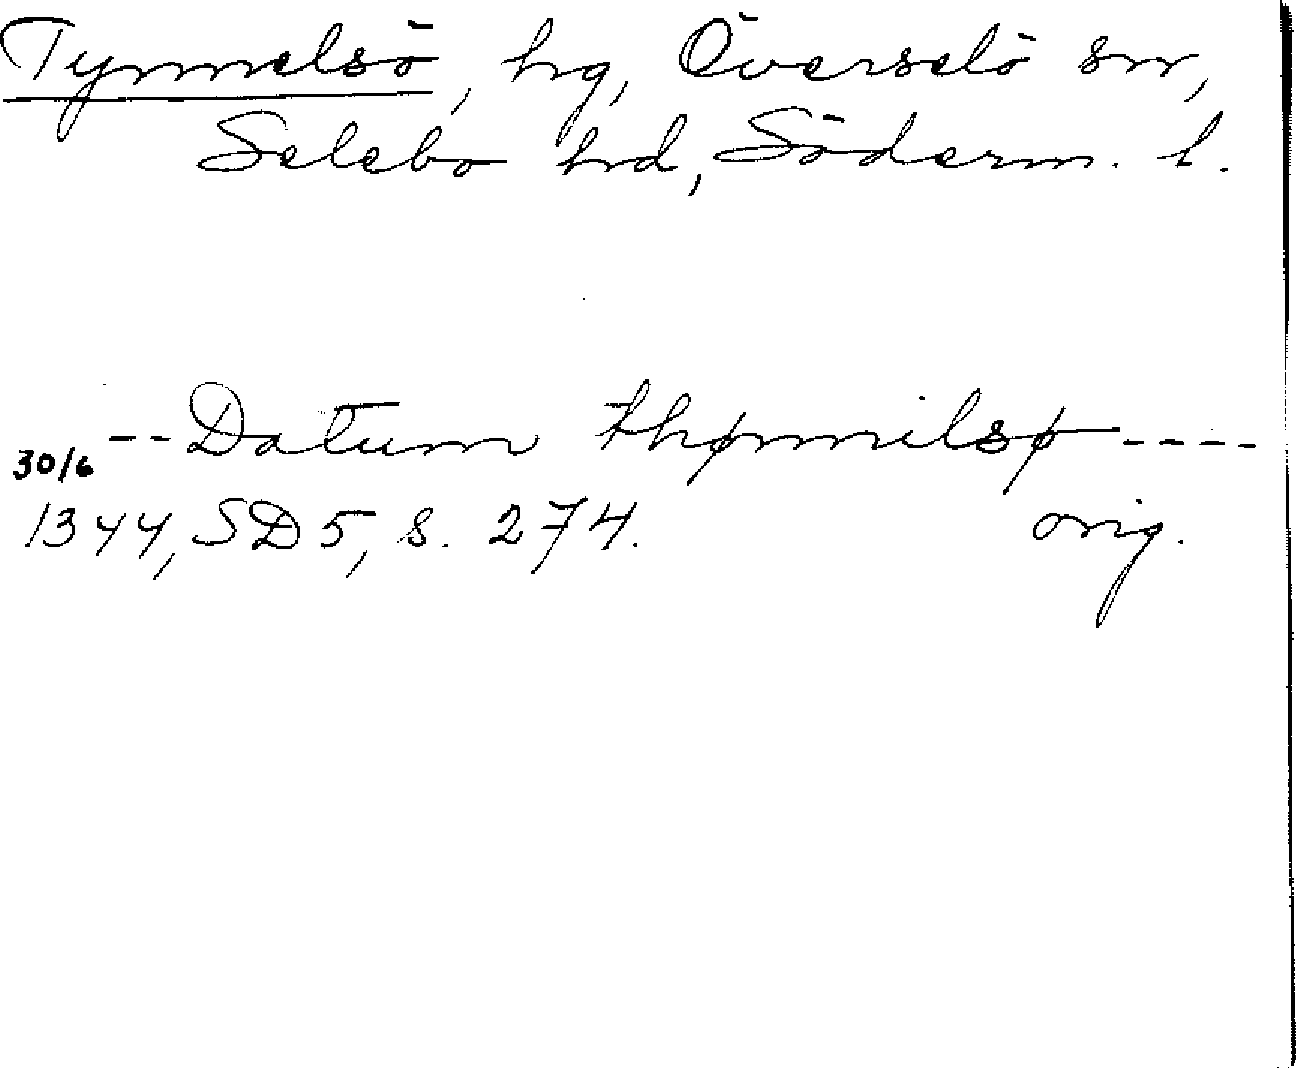 Tynnelsö, hg, Överselö sn,
Selebo hd, Söderm. l.
-- Datum thønnilsø ----
30/6
1344, SD 5, s. 274. orig.